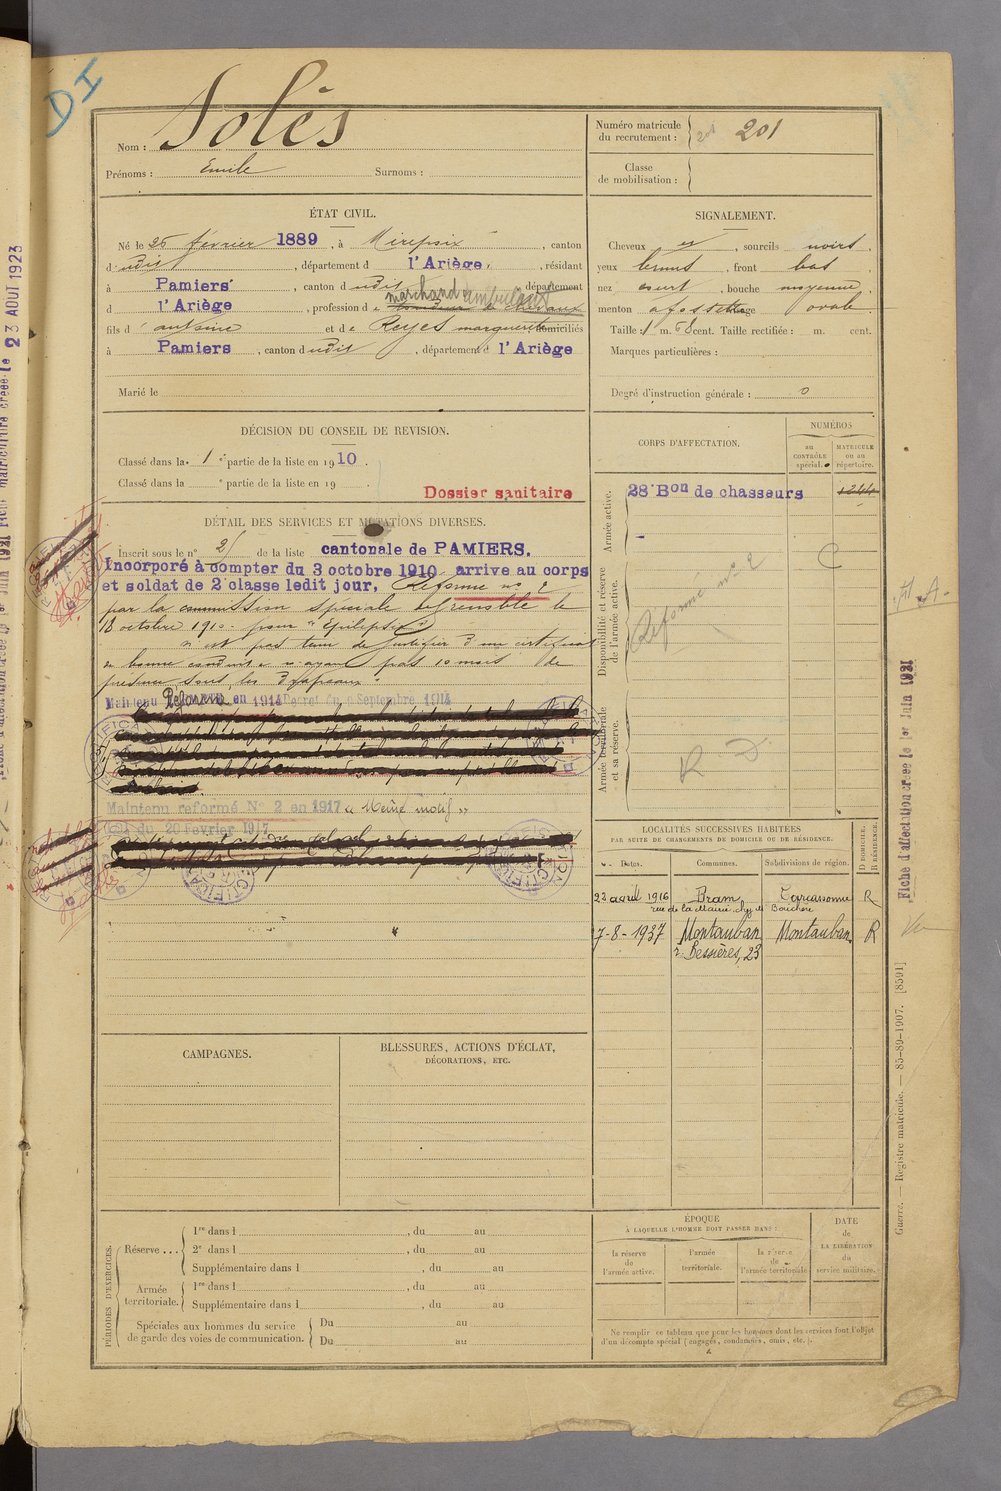 DI
Nom : Solès
Prénoms : Emile Surnoms :
Numéro matricule du recrutement : 201 201
Classe de mobilisation :
ÉTAT CIVIL.
Né le 25 février 1889, à Mirepoix, canton
dudit, département d l'Ariège, résidant
à Pamiers, canton dudit, département
d l'Ariège, profession de marchand ambulant
fils d' antoine et de Reyes marguerite domiciliés
à Pamiers, canton dudit, département d l'Ariège
Marié le
SIGNALEMENT.
Cheveux et, sourcils noirs,
yeux bruns, front bas
nez court, bouche moyenne,
menton à fossette visage ovale.
Taille : 1 m. 68 cent. Taille rectifiée : m. cent.
Marques particulières :
Degré d'instruction générale : 0
DÉCISION DU CONSEIL DE REVISION.
Classé dans la 1e partie de la liste en 1910.
Classé dans la e partie de la liste en 19 .
Dossier sanitaire
DÉTAIL DES SERVICES ET MUTATIONS DIVERSES.
Inscrit sous le n° 21 de la liste cantonale de PAMIERS.
Incorporé à compter du 3 octobre 1910 arrive au corps
et soldat de 2e classe ledit jour, Réformé n° 2
par la commission spéciale de Grenoble le
18 octobre 1910. pour "Epilepsie"
n'est pas tenu de justifier d'un certificat
de bonne conduite n'ayant pas 10 mois de
présence sous les drapeaux.
Maintenu Réformé en 1914 Decret du 9 Septembre 1914
Maintenu reformé N° 2 en 1917 "Même motif"
du 20 Fevrier 1917
CORPS D'AFFECTATION.
NUMÉROS
au CONTRÔLE spécial.
MATRICULE ou au répertoire.
Armée active.
28e Bon de chasseurs 1244
Disponibilité et réserve de l'armée active.
Réformé n° 2
C
Armée territoriale et sa réserve.
R D
LOCALITÉS SUCCESSIVES HABITÉES
PAR SUITE DE CHANGEMENTS DE DOMICILE OU DE RÉSIDENCE.
Dates. Communes. Subdivisions de région. D DOMICILE. R RÉSIDENCE.
22 avril 1916 Bram Carcassonne R
rue de la Mairie chez M Boucheri
7-8-1937 Montauban Montauban R
r. Bessières, 23
CAMPAGNES.
BLESSURES, ACTIONS D'ÉCLAT,
DÉCORATIONS, ETC.
PÉRIODES D'EXERCICES.
Réserve ...
1re dans l , du au
2e dans l , du au
Supplémentaire dans l , du au
Armée territoriale.
1re dans l , du au
Supplémentaire dans l , du au
Spéciales aux hommes du service de garde des voies de communication.
Du au
Du au
ÉPOQUE
À LAQUELLE L'HOMME DOIT PASSER DANS :
la réserve de l'armée active.
l'armée territoriale.
la réserve de l'armée territoriale
DATE de LA LIBÉRATION du service militaire.
Ne remplir ce tableau que pour les hommes dont les services font l'objet
d'un décompte spécial (engagés, condamnés, omis, etc.).
Fiche d'affectation créée le 1er Juin 1931
Guerre. — Registre matricule. — 85-89-1907. [8591]
23 AOUT 1923